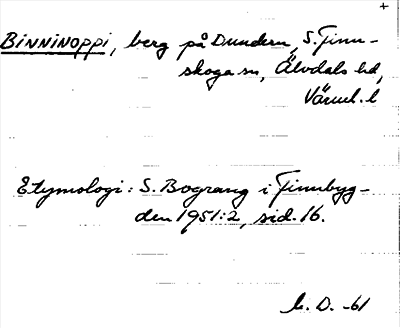 +
BINNINOPPI, berg på Dundern, S. Finn-
skoga sn, Älvdals hd,
Värml. l
Etymologi: S. Bograng i Finnbyg-
den 1951:2, sid. 16.
L. D. -61